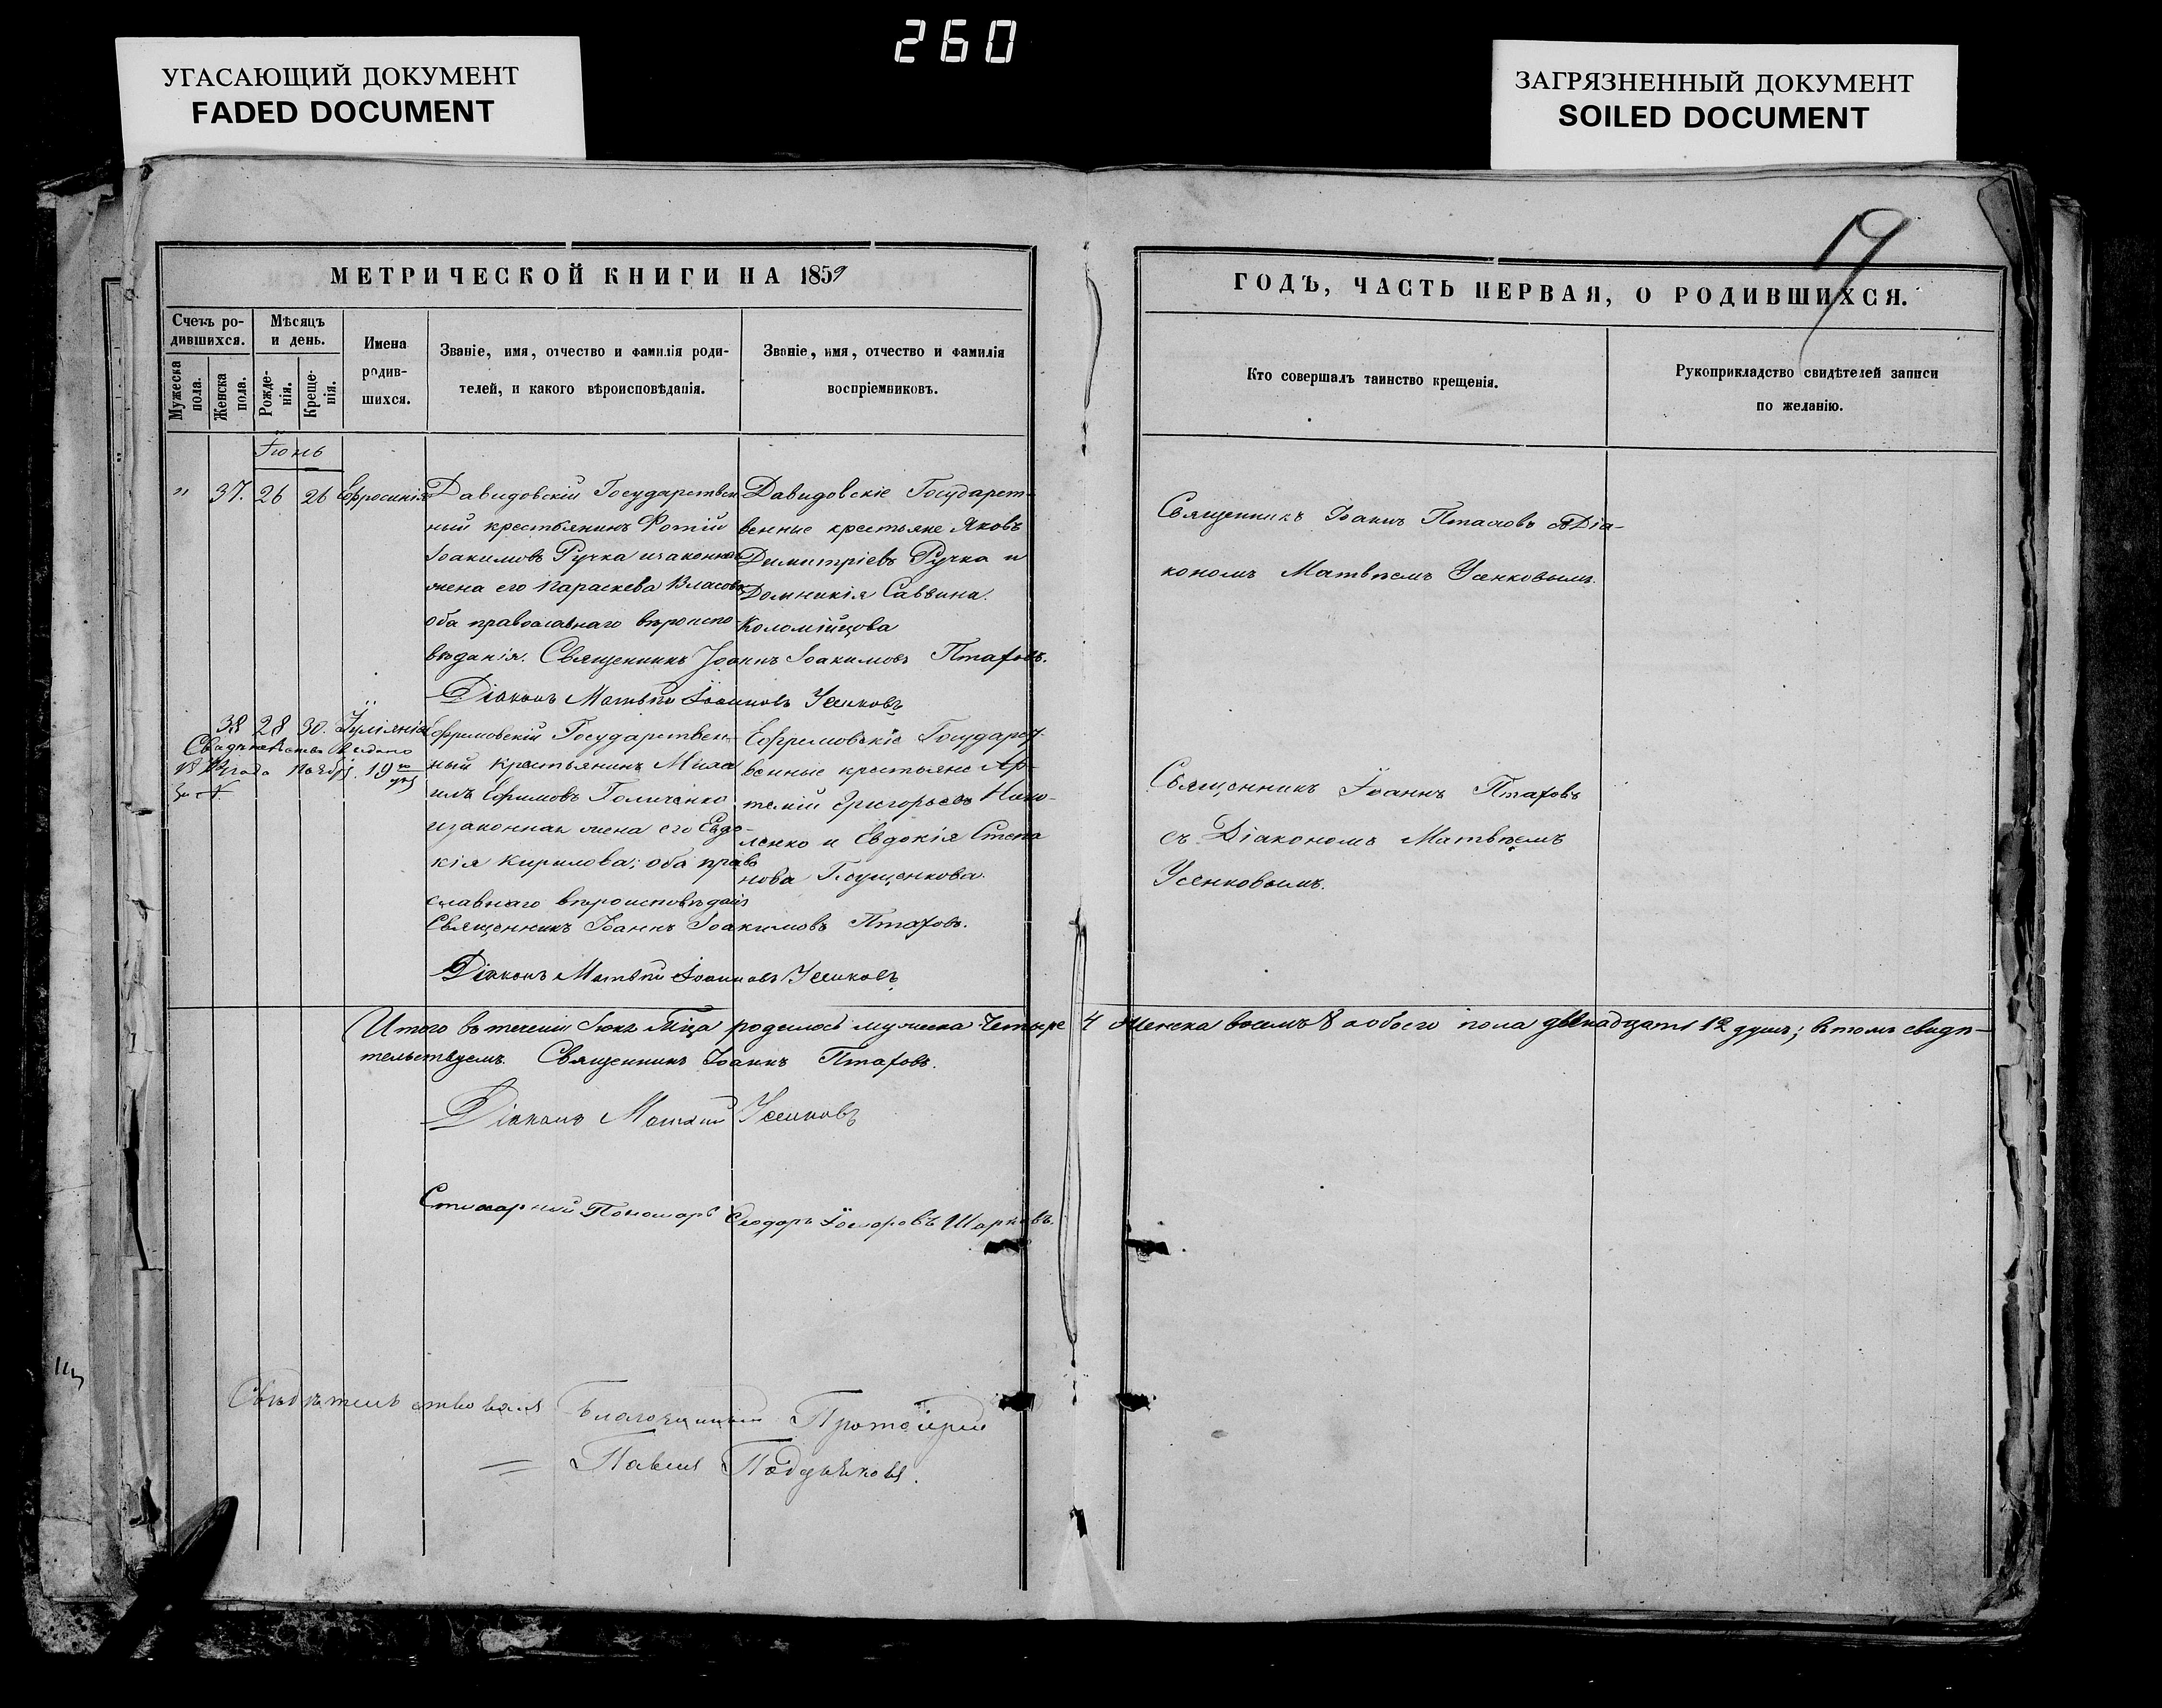 260
УГАСАЮЩИЙ ДОКУМЕНТ
FADED DOCUMENT
ЗАГРЯЗНЕННЫЙ ДОКУМЕНТ
SOILED DOCUMENT
19
МЕТРИЧЕСКОЙ КНИГИ НА 1859
ГОДЪ, ЧАСТЬ ПЕРВАЯ, О РОДИВШИХСЯ.
Счетъ ро-
дившихся.
Мужеска
пола.
Женска
пола.
Мѣсяцъ
и день.
Рожде-
нія.
Креще-
нія.
Имена
родив-
шихся.
Званіе, имя, отчество и фамилія роди-
телей, и какого вѣроисповѣданія.
Званіе, имя, отчество и фамилія
воспріемниковъ.
Кто совершалъ таинство крещенія.
Рукоприкладство свидѣтелей записи
по желанію.
Іюнь
" 37. 26 26 Ефросинія
Давидовскій Государствен
ный крестьянинъ Фотій
Іоакимовъ Ручка изаконная
жена его Параскева Власова
оба православнаго вѣроиспо-
вѣданія. Священникъ Іоаннъ Іоакимовъ Птаховъ.
Діаконъ Матвѣй Іоанновъ Усенковъ
Давидовскіе Государст-
венные крестьяне Яковъ
Димитріевъ Ручка и
Домникія Саввина
Коломійцова
Священникъ Іоаннъ Птаховъ съ Діа-
кономъ Матвѣемъ Усенковымъ.
38 28 30. Іуліянія
Свидѣтельство выдано
ноября 19
Ефремовскій Государствен-
ный Крестьянинъ Миха
илъ Ефимовъ Голиченко
изаконная жена его Евдо-
кія Кирилова; оба право
славнаго вѣроисповѣданія
Священникъ Іоаннъ Іоакимовъ Птаховъ.
Діаконъ Матвѣй Іоанновъ Усенковъ
Ефремовскіе Государст-
венные крестьяне Ар-
темій Григорьевъ Нико-
ленко и Евдокія Степа
нова Глущенкова.
Священникъ Іоаннъ Птаховъ
съ Діакономъ Матвѣемъ
Усенковымъ.
Итого въ теченіи Іюня М-ца родилось мужеска Четыре 4 Женска восемь 8 а обоего пола двѣнадцать 12 душъ; въ томъ свидѣ-
тельствуемъ. Священникъ Іоаннъ Птаховъ.
Діаконъ Матвѣй Усенковъ
Стихарный Пономарь Ѳеодоръ
Свидѣтельствовалъ Благочинный Протоіерей
Павелъ